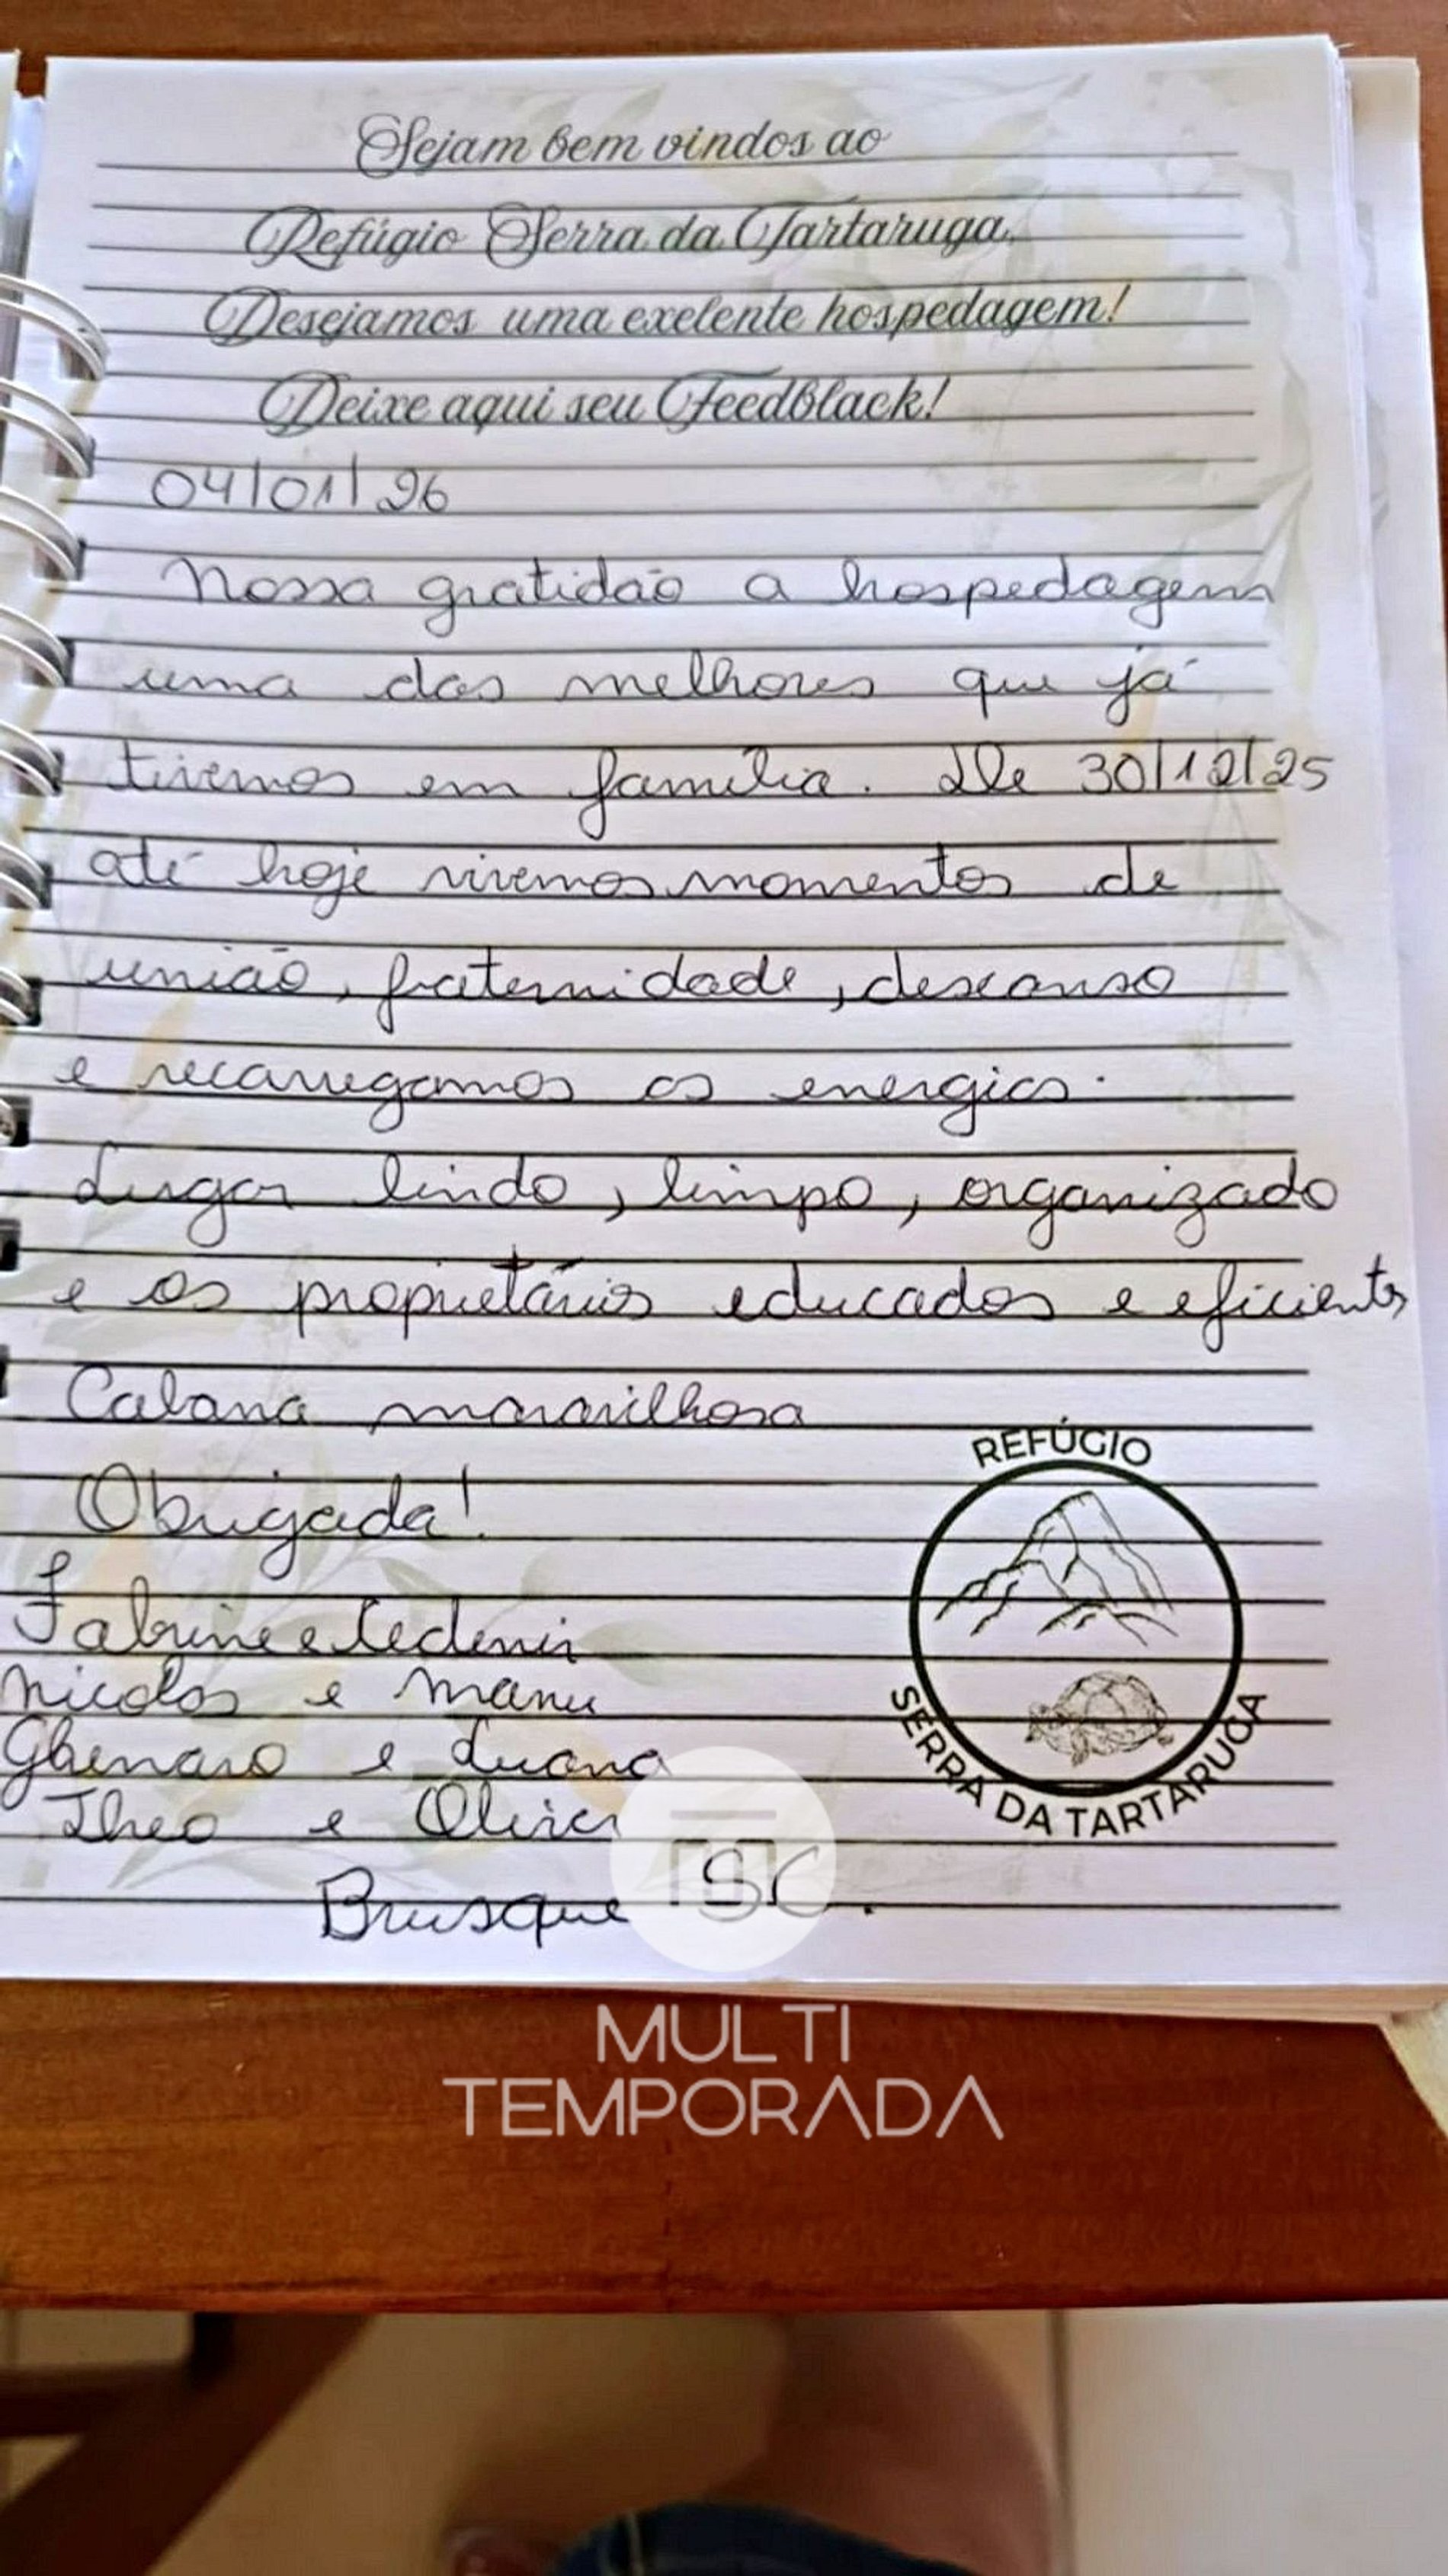 Sejam bem vindos ao
Refúgio Serra da Tartaruga,
Desejamos uma exelente hospedagem!
Deixe aqui seu Feedblack!
04/01/26
Nossa gratidão a hospedagem
uma das melhores que já
tivemos em família. De 30/12/25
até hoje vivemos momentos de
união, fraternidade, descanso
e recarregamos as energias.
Lugar lindo, limpo, organizado
e os propietários educados e eficientes
Cabana maravilhosa
Obrigada!
Fabrine e
Nicolas e Manu
Ghenaro e Luana
Theo e Olivia
Brusque SC.
REFÚGIO
SERRA DA TARTARUGA
MULTI
TEMPORADA